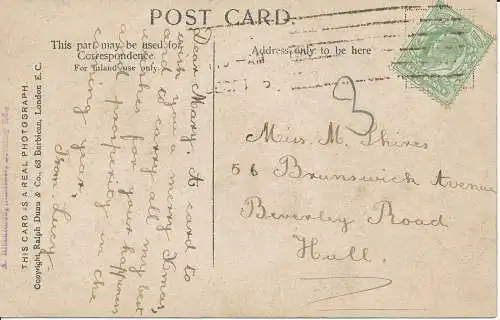 POST CARD.
This part may be used for
Correspondence.
For Inland use only.
Address only to be here
3
Dear Mary. A card to
wish you a merry Xmas,
and carry all my best
wishes for your happiness
and prosperity in the
coming year.
From Lucy.
Miss M. Shires
56 Brunswick Avenue
Beverley Road
Hull.
THIS CARD IS A REAL PHOTOGRAPH.
Copyright, Ralph Dunn & Co., 63 Barbican, London E.C.